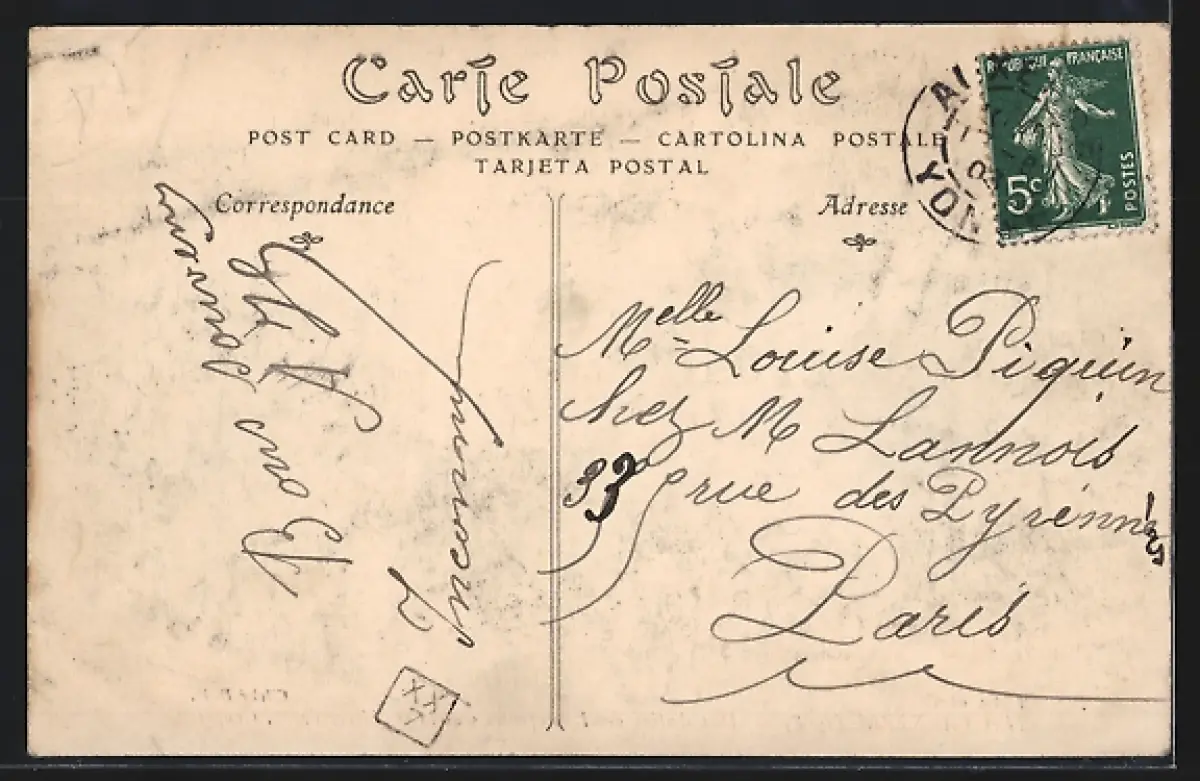 Carte Postale
POST CARD — POSTKARTE — CARTOLINA POSTALE
TARJETA POSTAL
Correspondance
Adresse
RÉPUBLIQUE FRANÇAISE
5c
POSTES
NOY
AI
Bons Souvenirs
Melle Louise Piquin
chez M Lannois
33 rue des Pyrénnées
Paris
XX